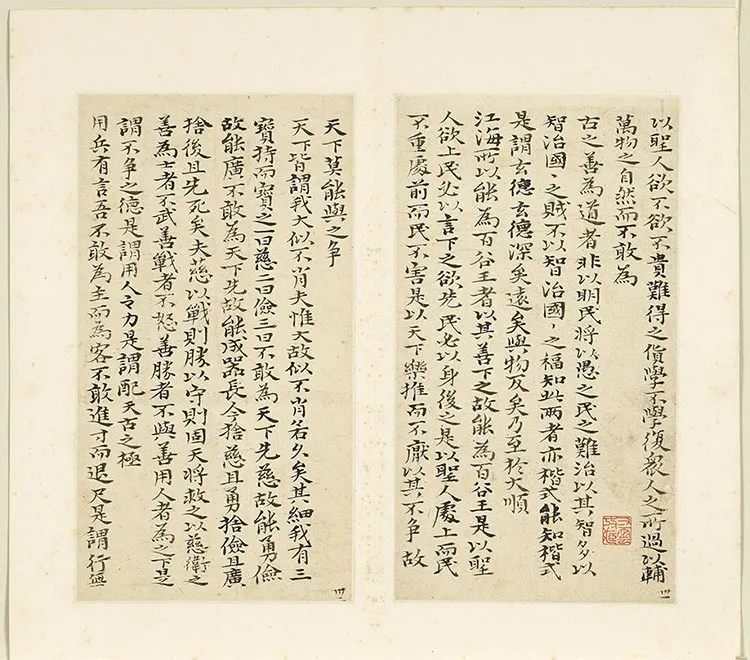 以聖人欲不欲不貴難得之貨學不學復衆人之所過以輔
萬物之自然而不敢為
古之善為道者非以明民將以愚之民之難治以其智多以
智治國〻之賊不以智治國〻之福知此兩者亦楷式能知楷式
是謂玄德玄德深矣遠矣與物反矣乃至於大順
江海所以能為百谷王者以其善下之故能為百谷王是以聖
人欲上民必以言下之欲先民必以身後之是以聖人處上而民
不重處前而民不害是以天下樂推而不厭以其不争故
天下莫能與之争
天下皆謂我大似不肖夫惟大故似不肖若久矣其細我有三
寶持而寶之一曰慈二曰儉三曰不敢為天下先慈故能勇儉
故能廣不敢為天下先故能成器長今捨慈且勇捨儉且廣
捨後且先死矣夫慈以戰則勝以守則固天將救之以慈衛之
善為士者不武善戰者不怒善勝者不與善用人者為之下是
謂不争之德是謂用人之力是謂配天古之極
用兵有言吾不敢為主而為客不敢進寸而退尺是謂行無